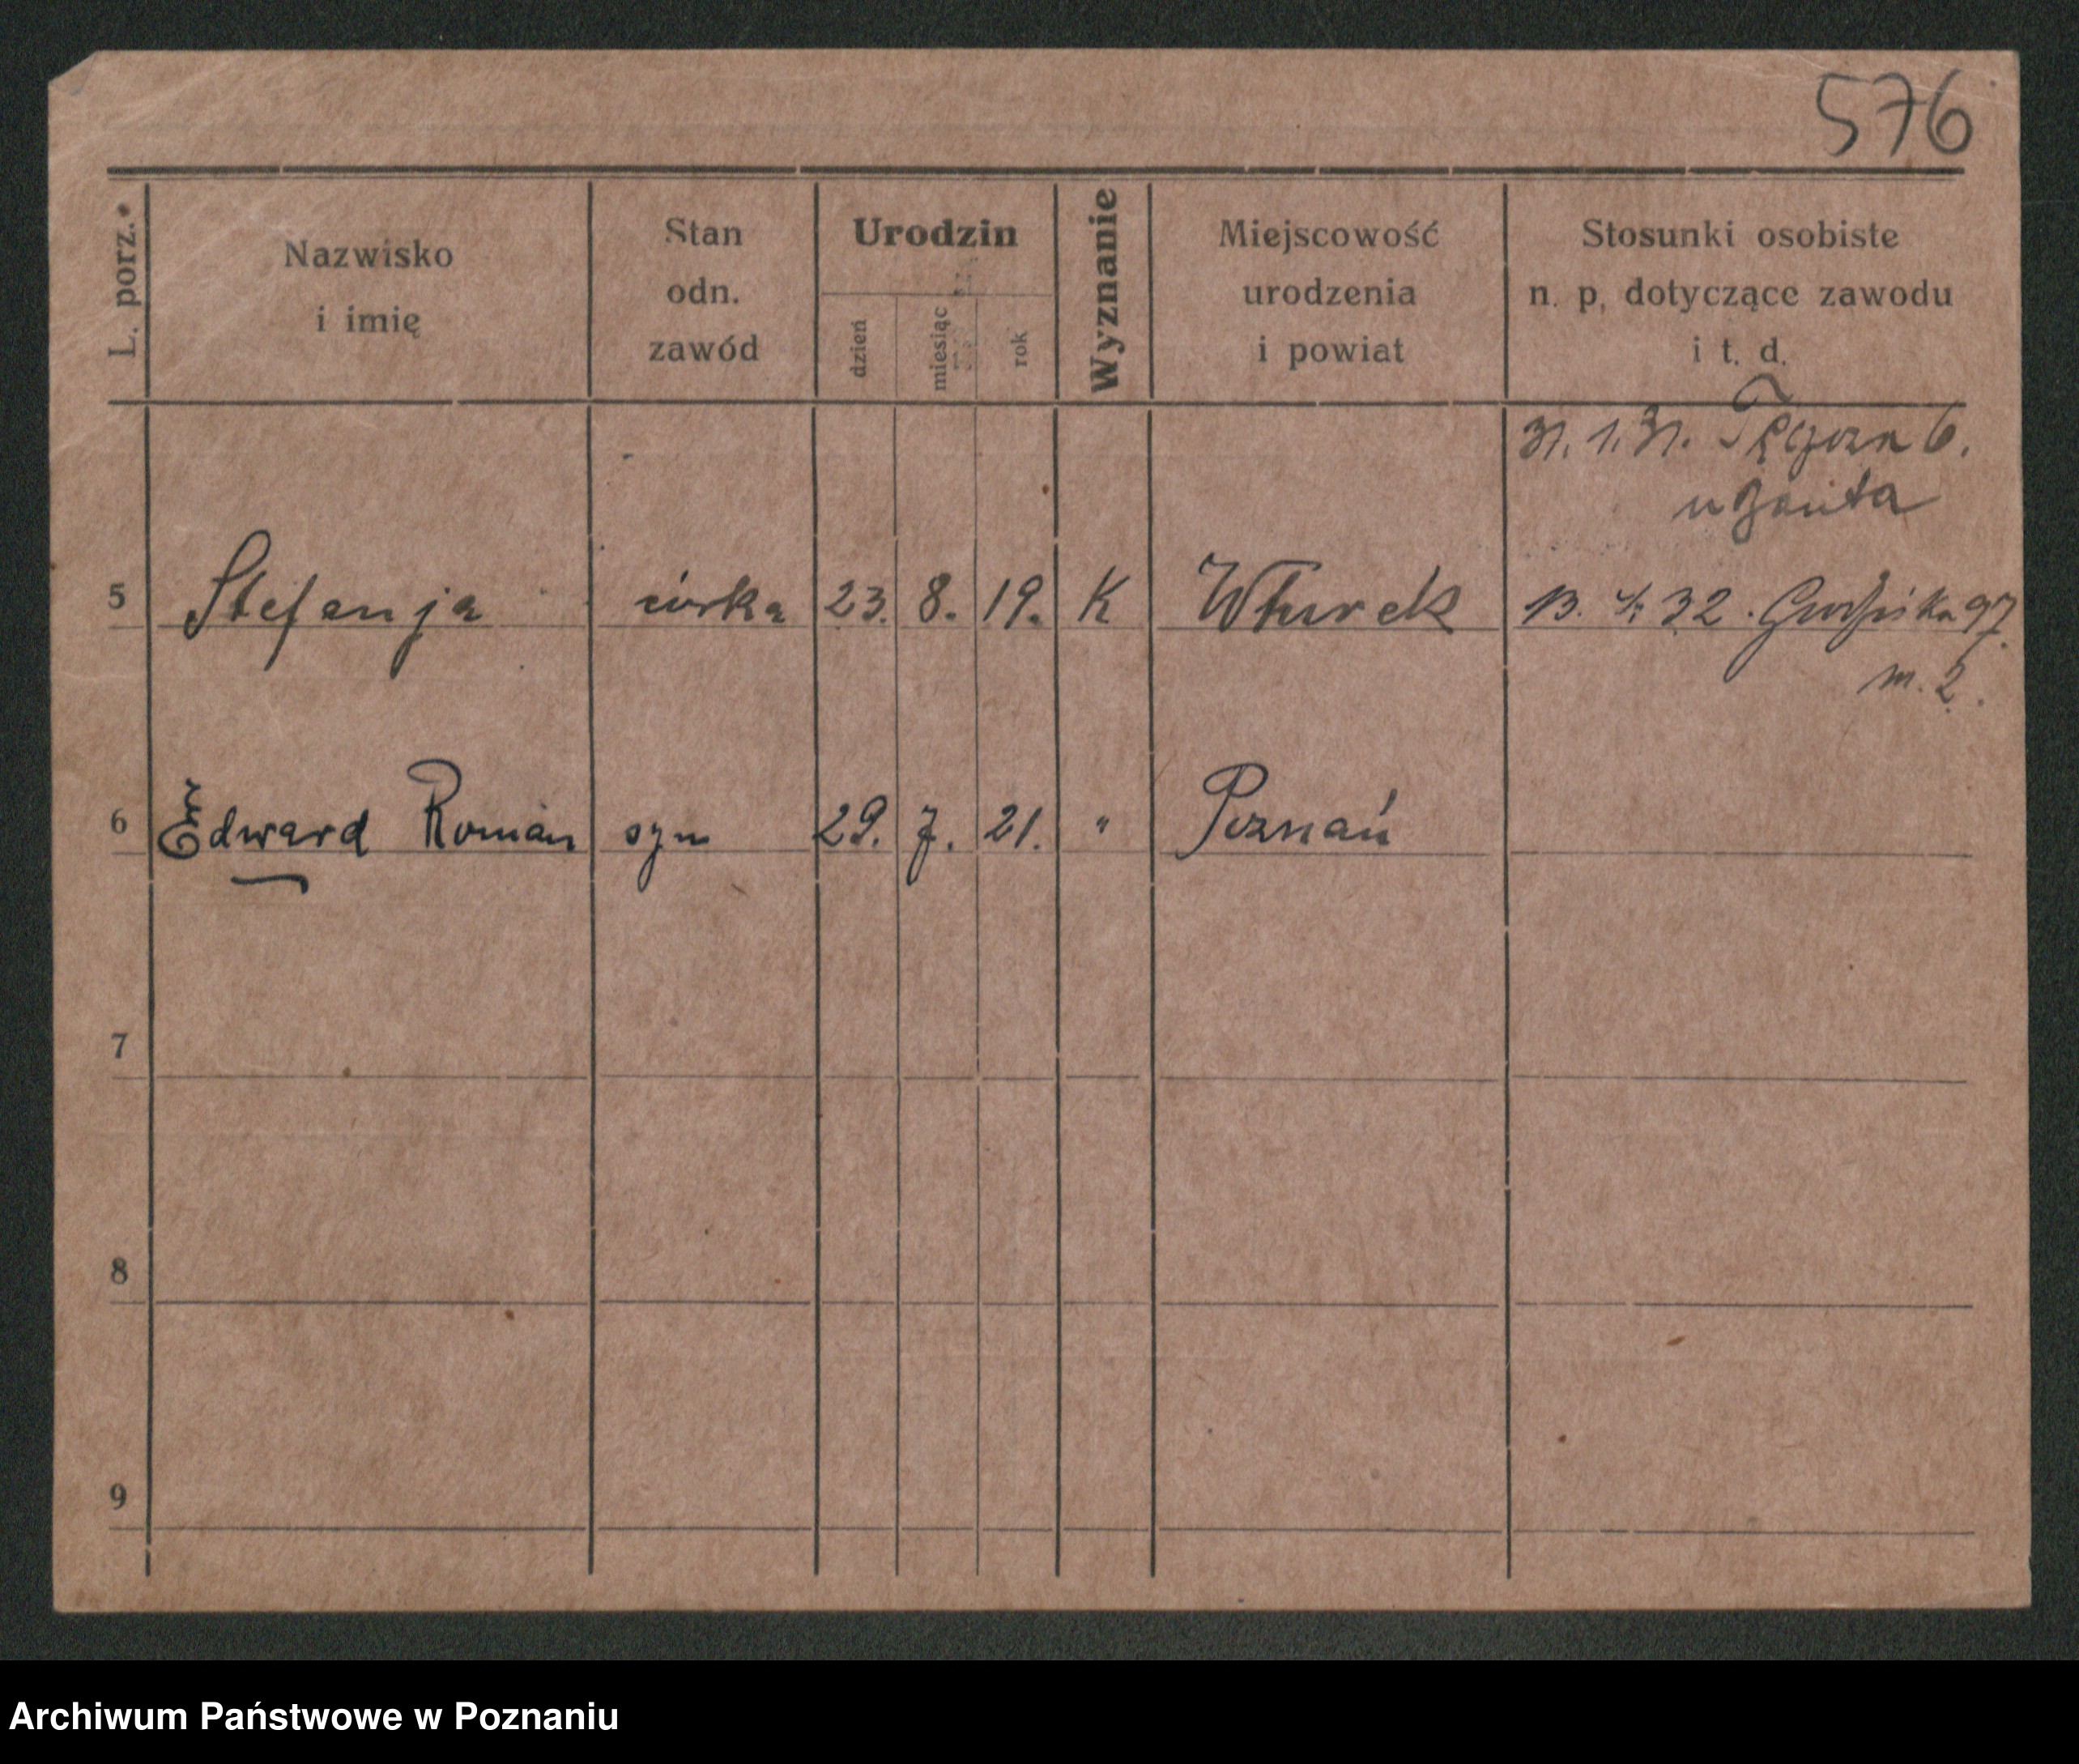 576
L. porz. Nazwisko i imię Stan odn. zawód Urodzin dzień miesiąc rok Wyznanie Miejscowość urodzenia i powiat Stosunki osobiste n. p. dotyczące zawodu i t. d.
31. 1. 31. 6.
5 Stefanja córka 23. 8. 19. K 13. 32. 97
m. 2.
6 Edward Roman syn 29. 7. 21. " Poznań
7
8
9
Archiwum Państwowe w Poznaniu